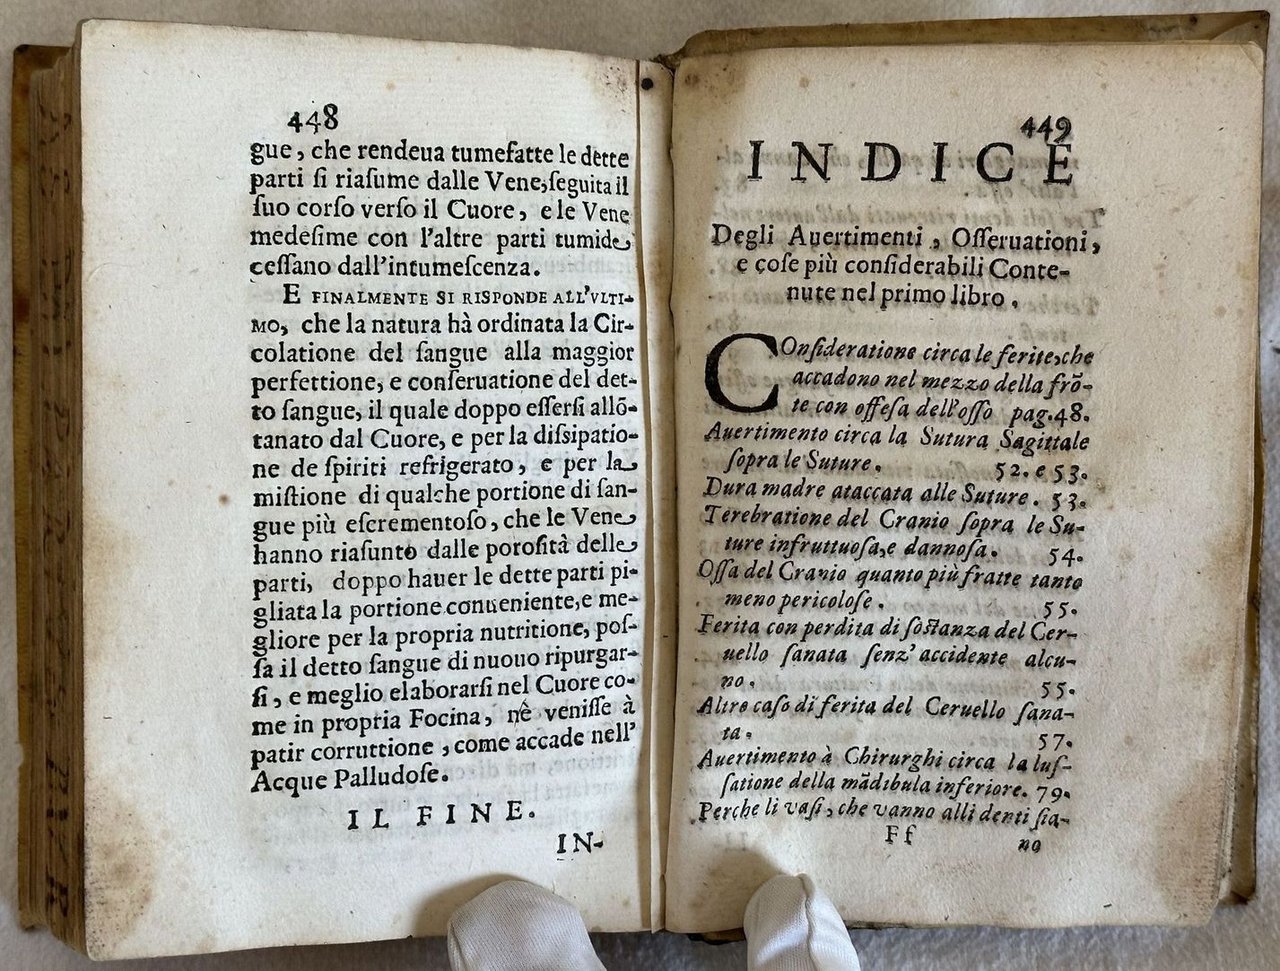 448
gue, che rendeua tumefatte le dette
parti ſi riaſume dalle Vene, ſeguita il
ſuo corſo verſo il Cuore, e le Vene
medeſime con l'altre parti tumide
ceſſano dall'intumeſcenza.
E FINALMENTE SI RISPONDE ALL'VLTI-
MO, che la natura hà ordinata la Cir-
colatione del ſangue alla maggior
perfettione, e conſeruatione del det-
to ſangue, il quale doppo eſſerſi allõ-
tanato dal Cuore, e per la diſsipatio-
ne de ſpiriti refrigerato, e per la
miſtione di qualche portione di ſan-
gue più eſcrementoſo, che le Vene
hanno riaſunto dalle poroſità delle
parti, doppo hauer le dette parti pi-
gliata la portione conueniente, e me-
gliore per la propria nutritione, poſ-
ſa il detto ſangue di nuouo ripurgar-
ſi, e meglio elaborarſi nel Cuore co-
me in propria Focina, nè veniſſe à
patir corruttione, come accade nell'
Acque Palludoſe.
IL FINE.
IN-
449
INDICE
Degli Auertimenti, Oſſeruationi,
e coſe più conſiderabili Conte-
nute nel primo libro.
COnſideratione circa le ferite, che
accadono nel mezzo della frõ-
te con offeſa dell'oſſo pag.48.
Auertimento circa la Sutura Sagittale
ſopra le Suture. 52. e 53.
Dura madre ataccata alle Suture. 53.
Terebratione del Cranio ſopra le Su-
ture infruttuoſa, e dannoſa. 54.
Oſſa del Cranio quanto più fratte tanto
meno pericoloſe. 55.
Ferita con perdita di ſoſtanza del Cer-
uello ſanata ſenz'accidente alcu-
no. 55.
Altro caſo di ferita del Ceruello ſana-
ta. 57.
Auertimento à Chirurghi circa la luſ-
ſatione della mãdibula inferiore. 79.
Perche li vaſi, che vanno alli denti ſia-
Ff no